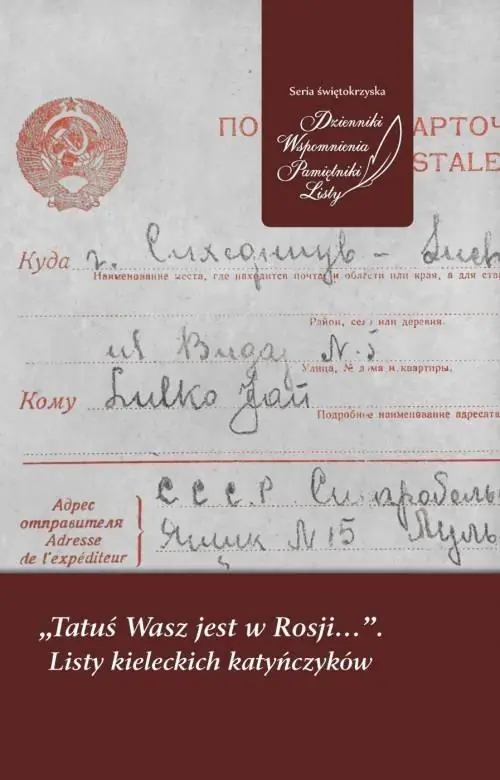 Seria świętokrzyska
Dzienniki
Wspomnienia
Pamiętniki
Listy
ПО АРТОЧ
STALE
Куда г.
Наименование места, где находится почта, и области или края, а для ств
Район, село или деревня.
ul N. 5
Улица, № дома и квартиры.
Кому Lulko Jan
Подробное наименование адресата
Адрес
отправителя
Adresse
de l'expéditeur
С.С.С.Р. Старобель
Ящик N 15
„Tatuś Wasz jest w Rosji...”.
Listy kieleckich katyńczyków